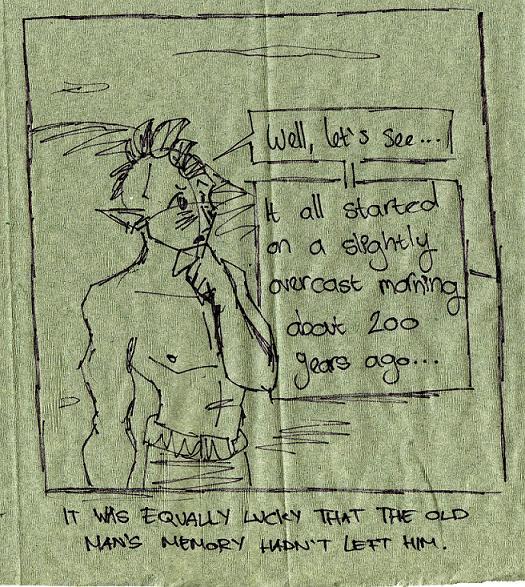 Well, let's see...
It all started
on a slightly
overcast morning
about 200
years ago...
IT WAS EQUALLY LUCKY THAT THE OLD
MAN'S MEMORY HADN'T LEFT HIM.